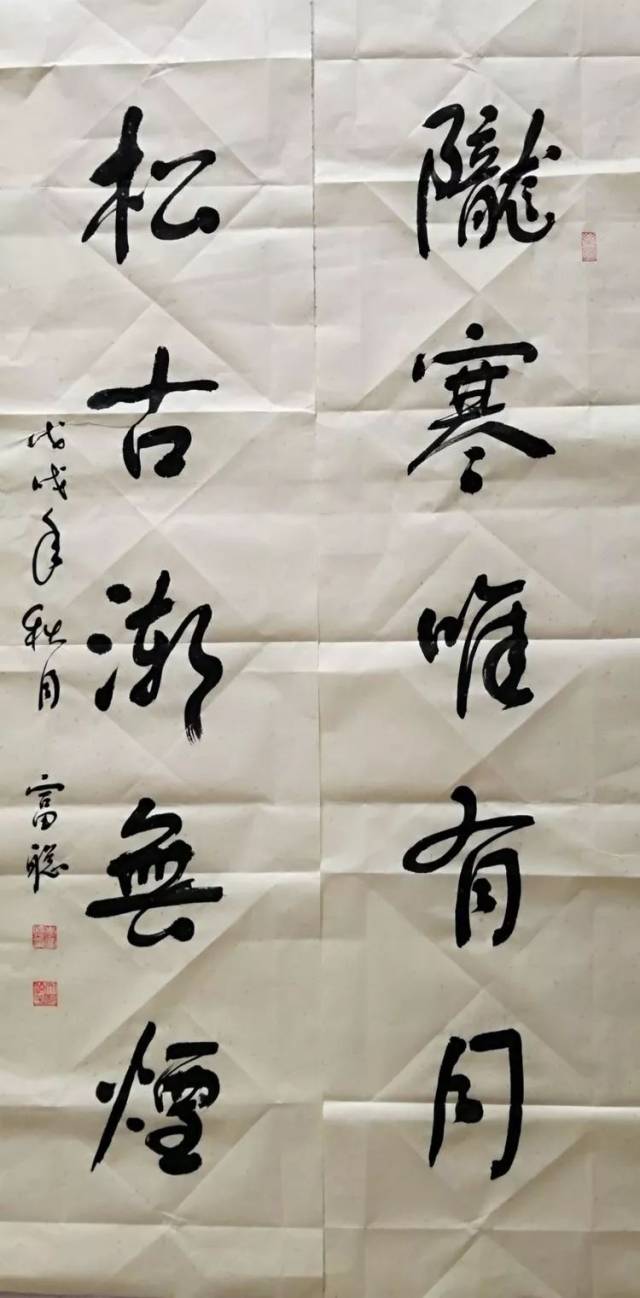 隴寒唯有月
松古漸無煙
戊戌年秋月 富聰